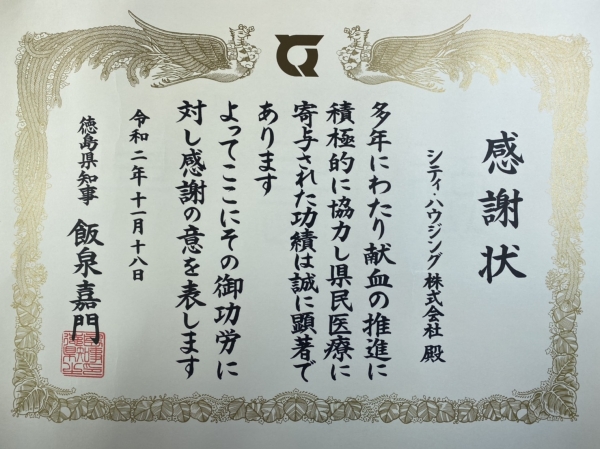 感謝状
シティ・ハウジング株式会社 殿
多年にわたり献血の推進に
積極的に協力し県民医療に
寄与された功績は誠に顕著で
あります
よってここにその御功労に
対し感謝の意を表します
令和二年十一月十八日
徳島県知事 飯泉嘉門